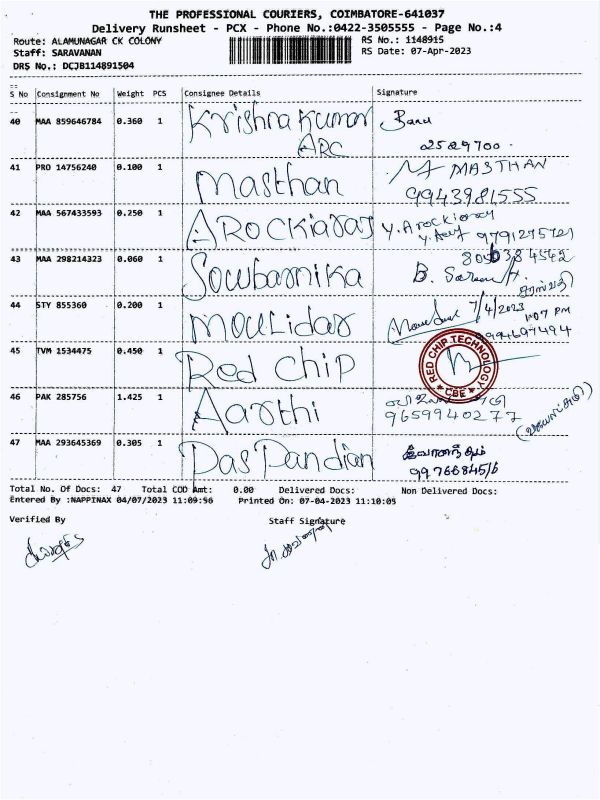 THE PROFESSIONAL COURIERS, COIMBATORE-641037
Delivery Runsheet - PCX - Phone No.:0422-3505555 - Page No.:4
Route: ALAMUNAGAR CK COLONY
RS No.: 1148915
Staff: SARAVANAN
RS Date: 07-Apr-2023
DRS No.: DCJB114891504
S No Consignment No Weight PCS Consignee Details Signature
40 MAA 859646784 0.360 1 Krishna Kumar Banu
ARC 2529700
41 PRO 14756240 0.100 1 Masthan MASTHAN
9943981555
42 MAA 567433593 0.250 1 AROCKiaraj Y. Arockiaraj
9791275721
43 MAA 298214323 0.060 1 Sowbarnika 8050384542
B.
44 STY 855360 0.200 1 MOULidar 7/4/2023
1:07 PM
994697494
45 TVM 1534475 0.450 1 Red Chip RED CHIP TECHNOLOGY
CBE
46 PAK 285756 1.425 1 Aarthi
9659940277
47 MAA 293645369 0.305 1 Das Pandian
Total No. Of Docs: 47 Total COD Amt: 0.00 Delivered Docs: Non Delivered Docs:
Entered By :NAPPINAX 04/07/2023 11:09:56 Printed On: 07-04-2023 11:10:05
Verified By Staff Signature